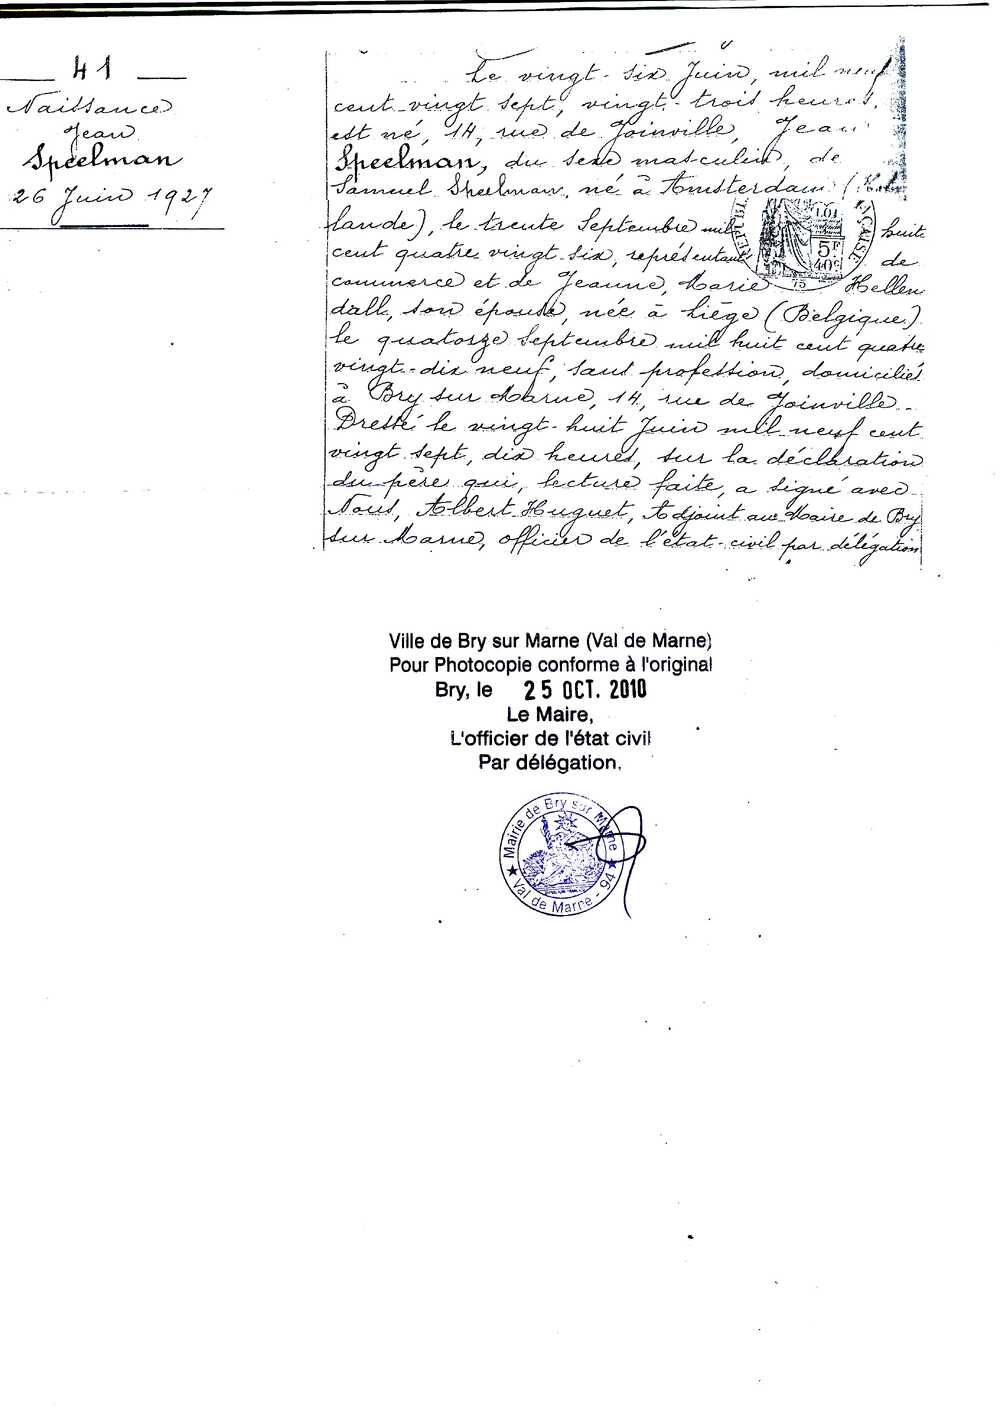 41
Naissance
Jean
Speelman
26 Juin 1927
Le vingt-six Juin, mil neuf
cent vingt sept, vingt-trois heures,
est né, 14, rue de Joinville, Jean
Speelman, du sexe masculin, de
Samuel Speelman, né à Amsterdam (Hol
lande), le trente Septembre mil huit
cent quatre vingt six, représentant de
commerce et de Jeanne, Marie Hellen
dall, son épouse, née à Liège (Belgique)
le quatorze Septembre mil huit cent quatre
vingt-dix neuf, sans profession, domiciliés
à Bry sur Marne, 14, rue de Joinville.
Dressé le vingt-huit Juin mil neuf cent
vingt sept, dix heures, sur la déclaration
du père qui, lecture faite, a signé avec
Nous, Albert Huguet, Adjoint au Maire de Bry
sur Marne, officier de l'état-civil par délégation
5F
40c
75
Ville de Bry sur Marne (Val de Marne)
Pour Photocopie conforme à l'original
Bry, le 25 OCT. 2010
Le Maire,
L'officier de l'état civil
Par délégation.
Mairie de Bry sur Marne
★ Val de Marne - 94 ★